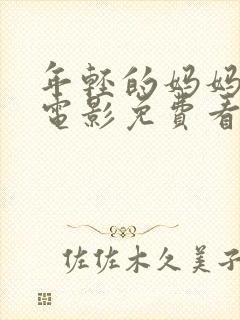 年轻的妈妈
電影免費看
佐佐木久美子